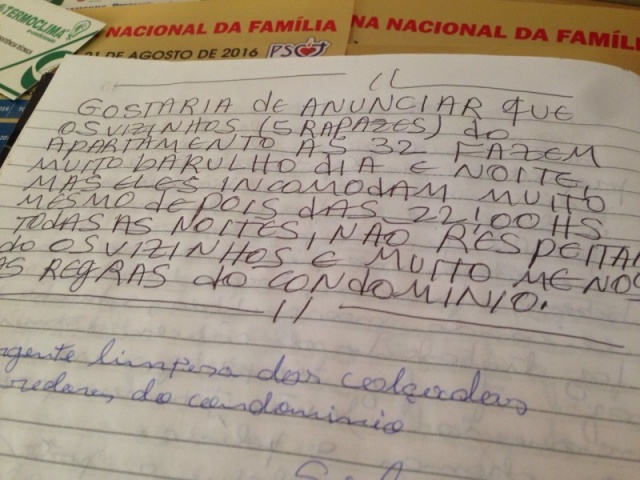 TERMOCLIMA
NACIONAL DA FAMÍLIA
21 DE AGOSTO DE 2016
NA NACIONAL DA FAMÍLI
GOSTARIA dE ANUNCIAR QUE
OS VIZINHOS (5 RAPAZES) do
APARTAMENTO AS 32 FAZEM
MUITO bARULHO dIA E NOITE,
MAS ELES INCOMODAM MUITO
MESMO dEPOIS DAS 22,00 HS
TODAS AS NOITES, NÃO RESPEITAN
do OS VIZINHOS E MUITO MENOS
AS REGRAS do CONDOMINIO.
gente limpesa das calçadas
redores do condominio